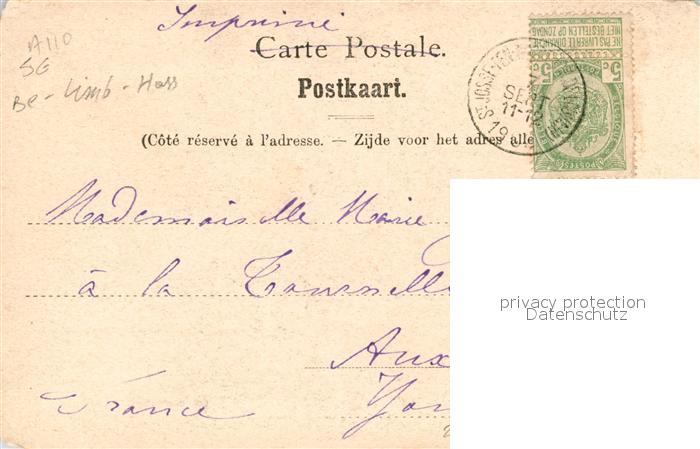 Imprimé
A110
SG
Be - Limb - Hass
Carte Postale.
Postkaart.
(Côté réservé à l'adresse. — Zijde voor het adres alle
NE PAS LIVRER LE DIMANCHE
NIET BESTELLEN OP ZONDAG
5c 5c
POSTES
ST JOSSE-TEN-
SEPT
11-12
19
Mademoiselle Marie
à la Tournelle
Aux
Yon
France
privacy protection
Datenschutz